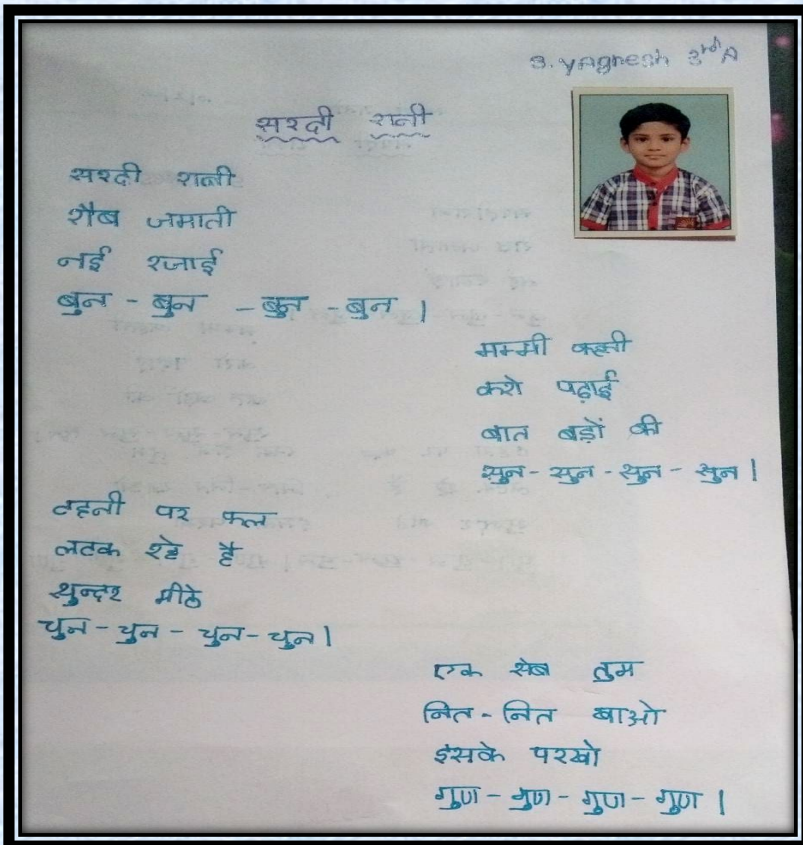 S. Yagnesh 3rd A
सरदी रानी
सरदी रानी
रौब जमाती
नई रजाई
बुन - बुन - बुन - बुन ।
मम्मी कहती
करो पढ़ाई
बात बड़ों की
सुन - सुन - सुन - सुन ।
टहनी पर फल
लटक रहे है
सुन्दर मीठे
चुन - चुन - चुन - चुन ।
एक सेब तुम
नित - नित खाओ
इसके परखो
गुण - गुण - गुण - गुण ।